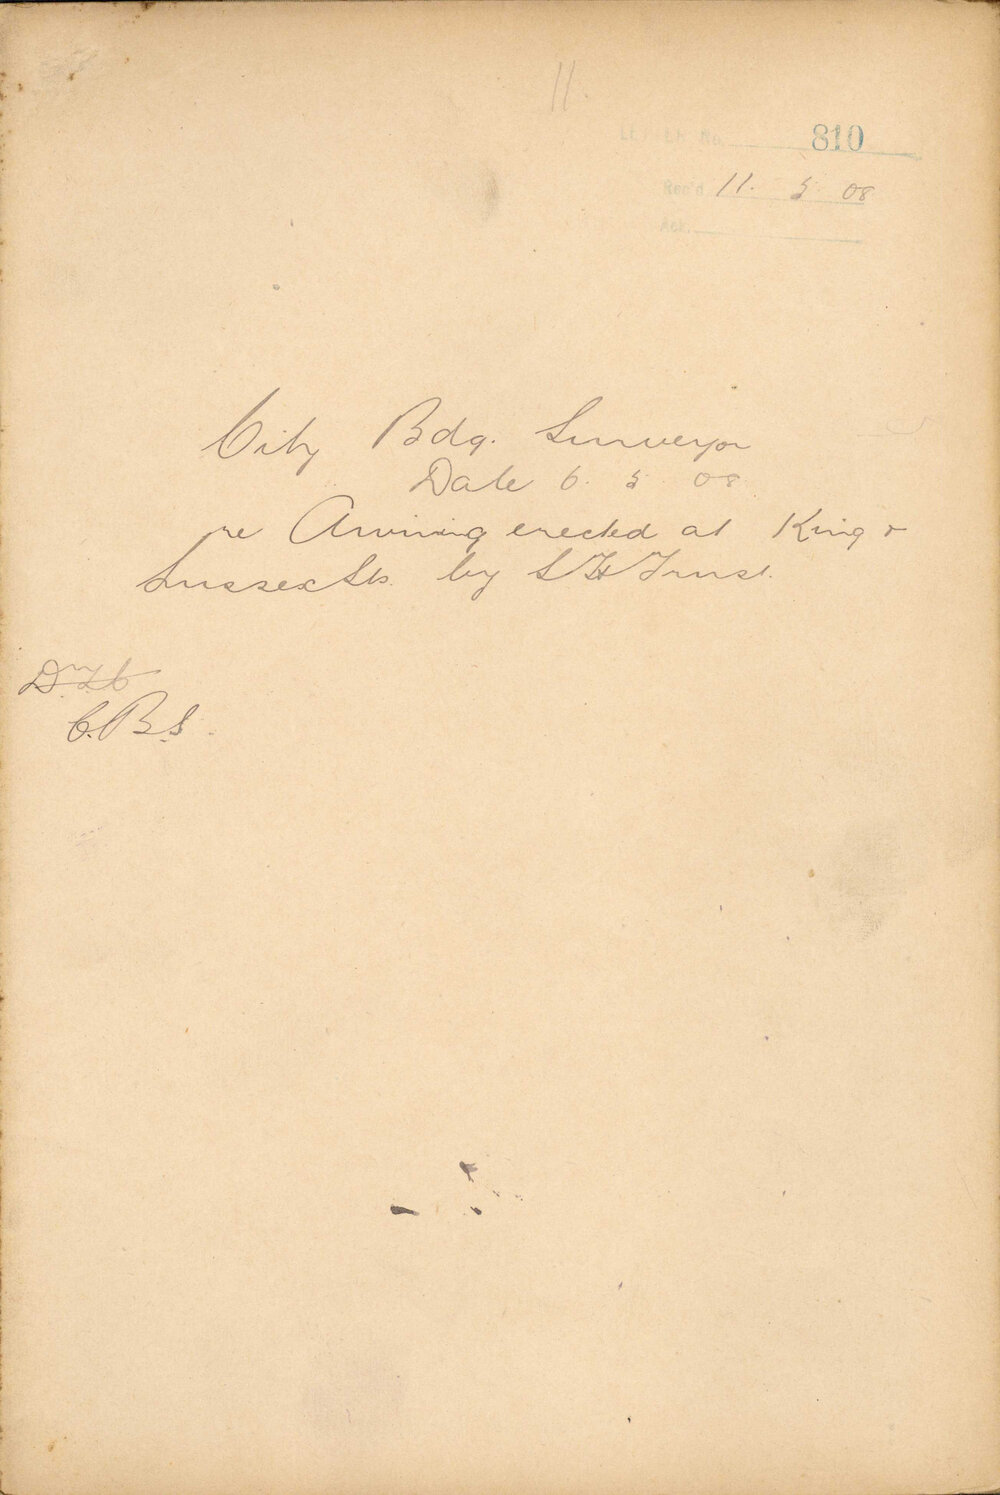 11.
LETTER No. 810
Rec'd 11. 5 08
Ack.
City Bdg. Surveyor
Date 6. 5 08
re Awning erected at King &
Sussex Sts. by S H Trust.
C.B.S.